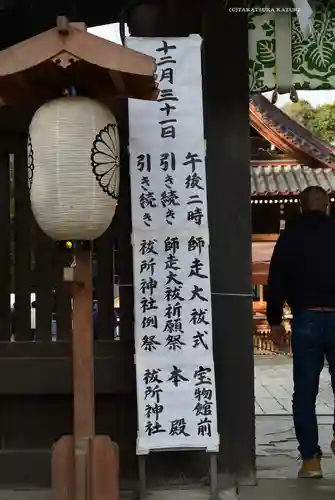 (C)TAKATSUKA KAZUO
十二月三十一日
午後二時 師走大祓式 宝物館前
引き続き 師走大祓祈願祭 本殿
引き続き 祓所神社例祭 祓所神社